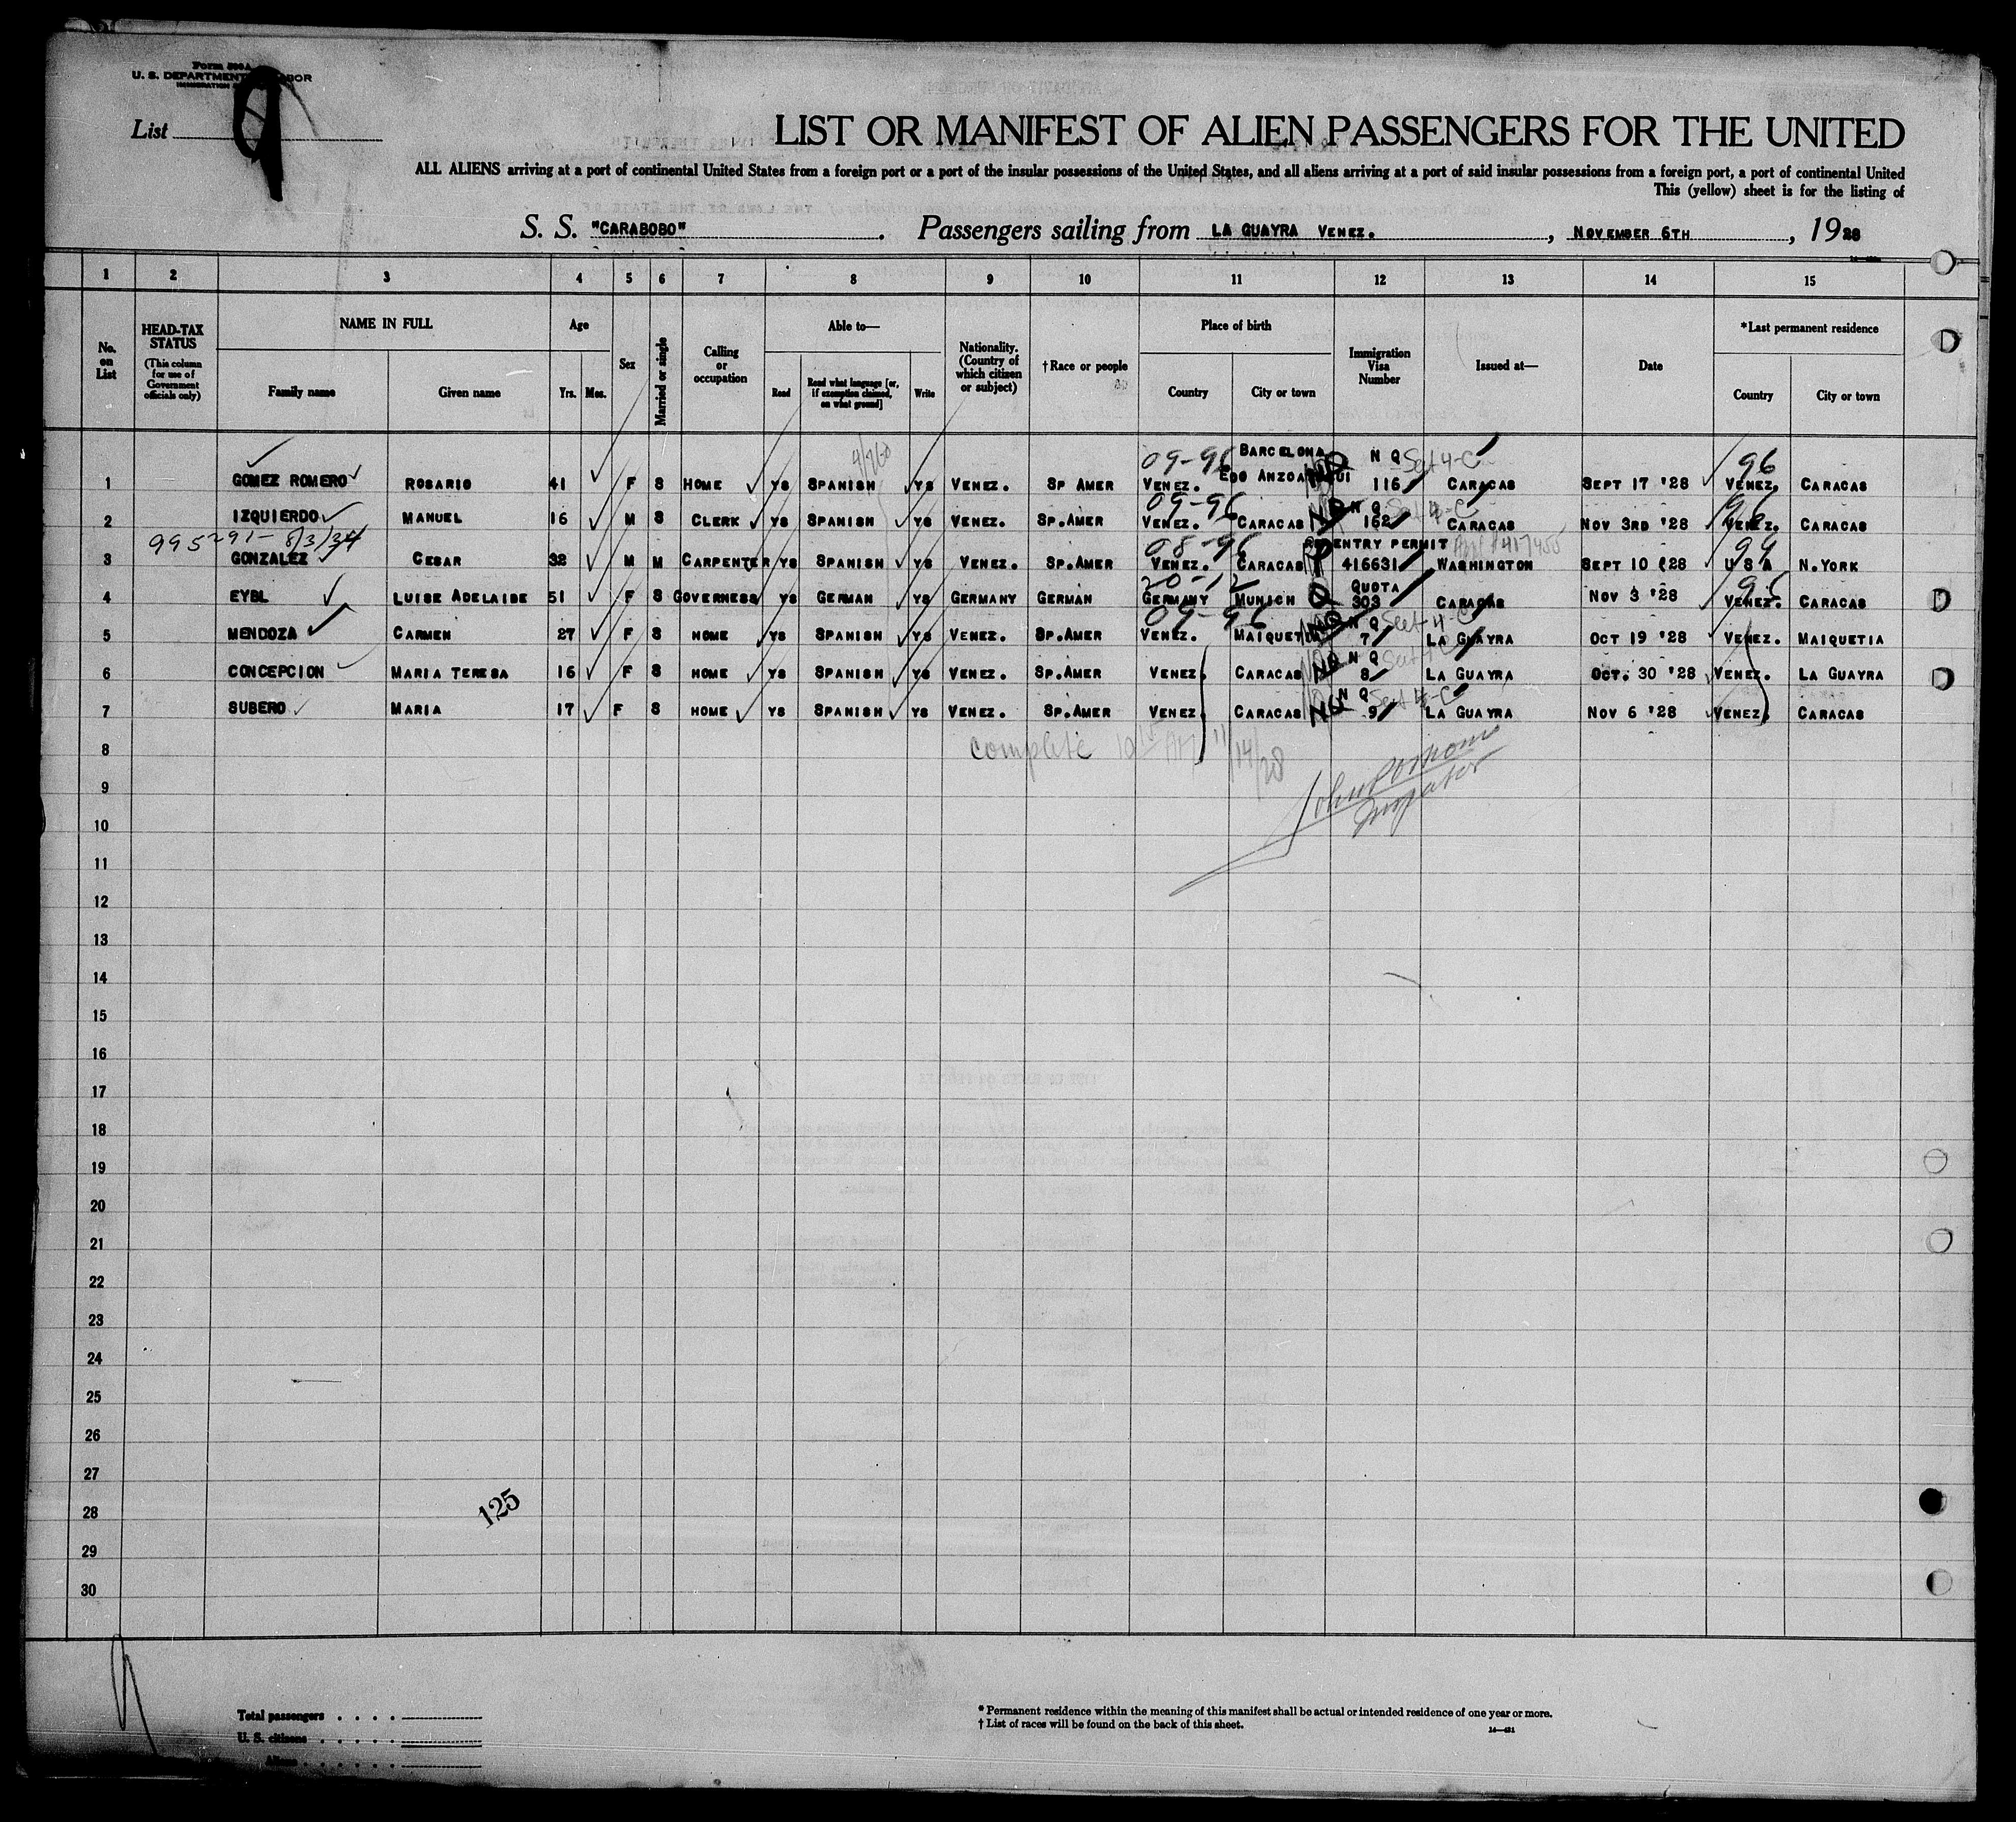 Form 500A
U. S. DEPARTMENT LABOR
IMMIGRATION
List 9
LIST OR MANIFEST OF ALIEN PASSENGERS FOR THE UNITED
ALL ALIENS arriving at a port of continental United States from a foreign port or a port of the insular possessions of the United States, and all aliens arriving at a port of said insular possessions from a foreign port, a port of continental United
This (yellow) sheet is for the listing of
S. S. "CARABOBO". Passengers sailing from LA GUAYRA VENEZ., NOVEMBER 6TH, 1928
1 2 3 4 5 6 7 8 9 10 11 12 13 14 15
No. on List HEAD-TAX STATUS (This column for use of Government officials only) NAME IN FULL Family name Given name Age Yrs. Mos. Sex Married or single Calling or occupation Able to— Read Read what language [or, if exemption claimed, on what ground] Write Nationality. (Country of which citizen or subject) † Race or people Place of birth Country City or town Immigration Visa Number Issued at— Date *Last permanent residence Country City or town
4/760
09-96 BARCELONA N Q Sect 4-C 96
1 GOMEZ ROMERO ROSARIO 41 F S HOME YS SPANISH YS VENEZ. SP AMER VENEZ. EDO ANZOATEGUI 116 CARACAS SEPT 17 '28 VENEZ. CARACAS
09-96 NQ N Q Sect 4-C 96
2 IZQUIERDO MANUEL 16 M S CLERK YS SPANISH YS VENEZ. SP.AMER VENEZ. CARACAS 162 CARACAS NOV 3RD '28 VENEZ. CARACAS
995291- 8/3/34 08-96 REENTRY PERMIT 94
3 GONZALEZ CESAR 32 M M CARPENTER YS SPANISH YS VENEZ. SP.AMER VENEZ. CARACAS 416631 WASHINGTON SEPT 10 '28 U S A N.YORK
20-12 Q QUOTA 96
4 EYBL LUISE ADELAIDE 51 F S GOVERNESS YS GERMAN YS GERMANY GERMAN GERMANY MUNICH 303 CARACAS NOV 3 '28 VENEZ. CARACAS
09-96 NQ N Q Sect 4-C
5 MENDOZA CARMEN 27 F S HOME YS SPANISH YS VENEZ. SP.AMER VENEZ. MAIQUETIA 7 LA GUAYRA OCT 19 '28 VENEZ. MAIQUETIA
NQ N Q Sect 4-C
6 CONCEPCION MARIA TERESA 16 F S HOME YS SPANISH YS VENEZ. SP.AMER VENEZ CARACAS 8 LA GUAYRA OCT. 30 '28 VENEZ. LA GUAYRA
NQ N Q Sect 4-C
7 SUBERO MARIA 17 F S HOME YS SPANISH YS VENEZ. SP.AMER VENEZ CARACAS 9 LA GUAYRA NOV 6 '28 VENEZ. CARACAS
8 complete 11/14/28
9
10
11
12
13
14
15
16
17
18
19
20
21
22
23
24
25
26
27
28 125
29
30
Total passengers
U. S. citizens
Aliens
* Permanent residence within the meaning of this manifest shall be actual or intended residence of one year or more.
† List of races will be found on the back of this sheet.